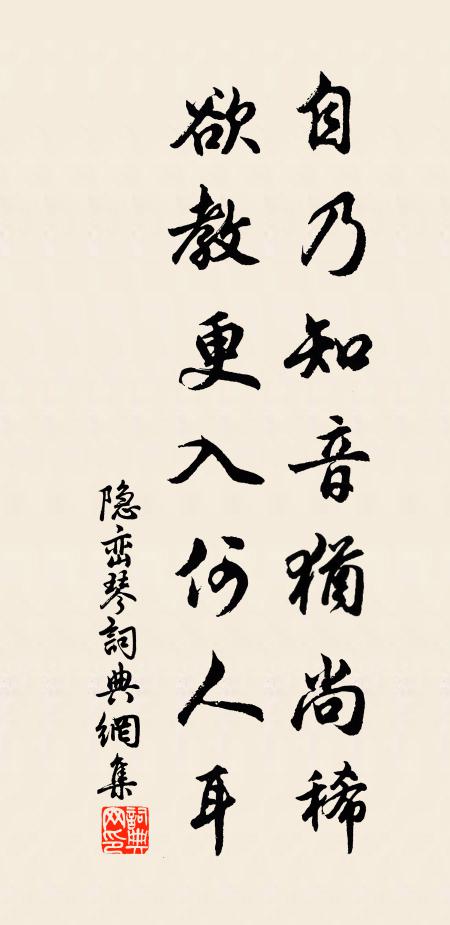 自乃知音猶尚稀
欲教更入何人耳
隐巒琴詞典網集
詞典網印